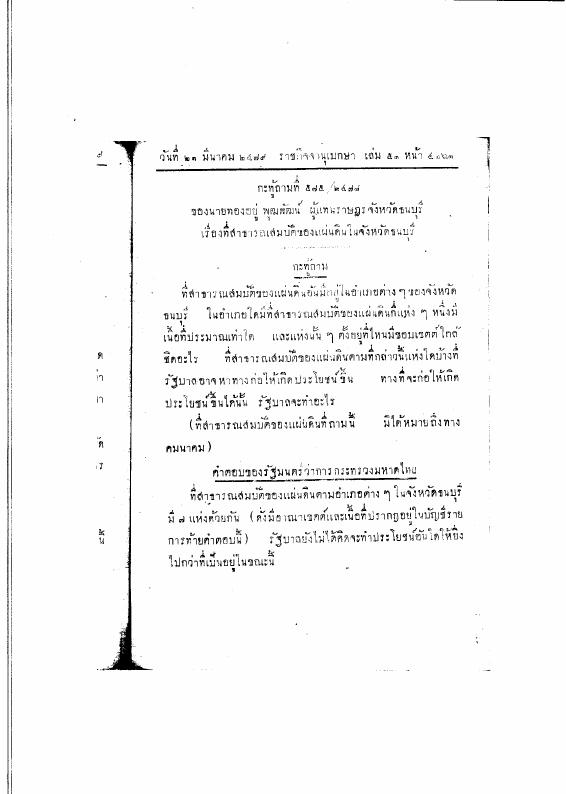 วันที่ ๒๓ มีนาคม ๒๔๗๙ ราชกิจจานุเบกษา เล่ม ๕๓ หน้า
กะทู้ถามที่ ๕๗๕/๒๔๗๘
ของนายทองอยู่ พุฒพัฒน์ ผู้แทนราษฎรจังหวัดธนบุรี
เรื่องที่สาธารณสมบัติของแผ่นดินในจังหวัดธนบุรี
กะทู้ถาม
ที่สาธารณสมบัติของแผ่นดินอันมีอยู่ในอำเภอต่าง ๆ ของจังหวัด
ธนบุรี ในอำเภอใดมีที่สาธารณสมบัติของแผ่นดินกี่แห่ง ๆ หนึ่งมี
เนื้อที่ประมาณเท่าใด และแห่งนั้น ๆ ตั้งอยู่ที่ไหนมีขอบเขตต์ใกล้
ชิดอะไร ที่สาธารณสมบัติของแผ่นดินตามที่กล่าวนี้แห่งใดบ้างที่
รัฐบาลอาจหาทางก่อให้เกิดประโยชน์ขึ้น ทางที่จะก่อให้เกิด
ประโยชน์ขึ้นได้นั้น รัฐบาลจะทำอะไร
(ที่สาธารณสมบัติของแผ่นดินที่ถามนี้ มิได้หมายถึงทาง
คมนาคม)
คำตอบของรัฐมนตรีว่าการกระทรวงมหาดไทย
ที่สาธารณสมบัติของแผ่นดินตามอำเภอต่าง ๆ ในจังหวัดธนบุรี
มี ๗ แห่งด้วยกัน (ดังมีอาณาเขตต์และเนื้อที่ปรากฏอยู่ในบัญชีราย
การท้ายคำตอบนี้) รัฐบาลยังไม่ได้คิดจะทำประโยชน์อันใดให้ยิ่ง
ไปกว่าที่เป็นอยู่ในขณะนี้